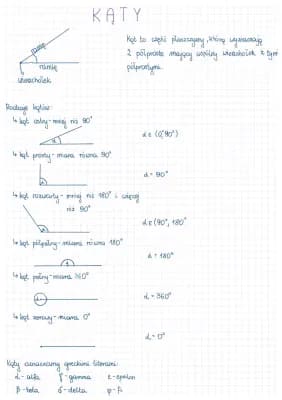 KĄTY
Kąt to część płaszczyzny, którą wyznaczają
2 półproste mające wspólny wierzchołek z tymi
półprostymi.
ramię
ramię
wierzchołek
Rodzaje kątów:
↳ kąt ostry - mniej niż 90°
α ∈ (0°, 90°)
↳ kąt prosty - miara równa 90°
α = 90°
↳ kąt rozwarty - mniej niż 180° i więcej
niż 90°
α ∈ (90°, 180°
↳ kąt półpełny - miara równa 180°
α = 180°
↳ kąt pełny - miara 360°
α = 360°
↳ kąt zerowy - miara 0°
α = 0°
Kąty oznaczamy greckimi literami:
α - alfa γ - gamma ε - epsilon
β - beta δ - delta φ - fi